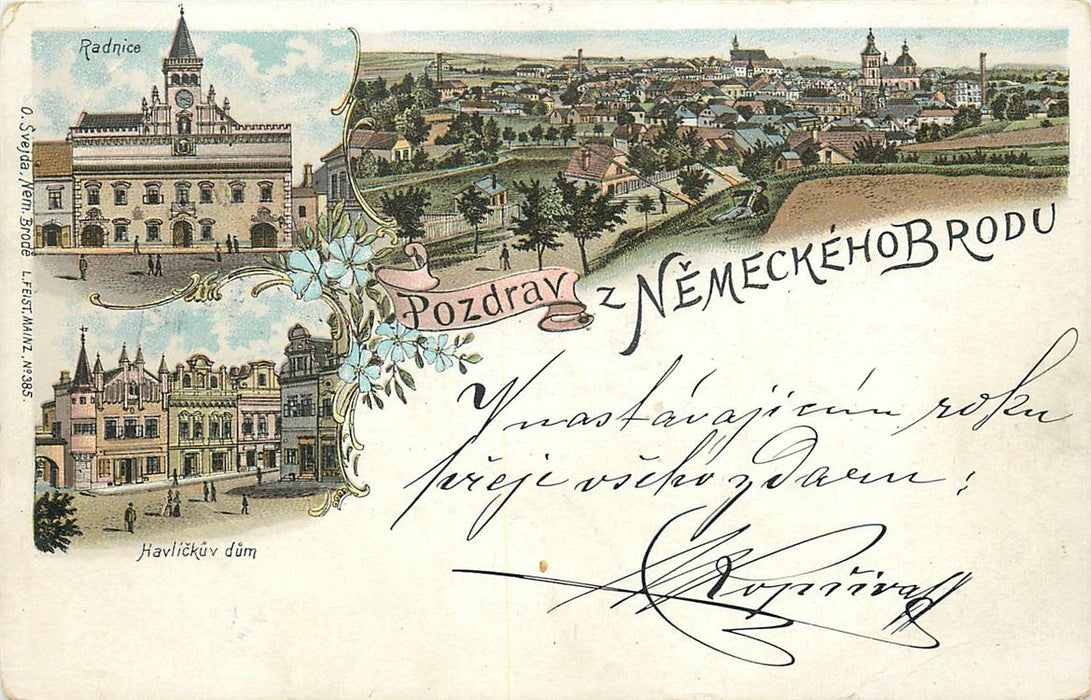 Radnice
Pozdrav z NĚMECKÉHO BRODU
O. Švejda, Něm. Brodě L. FEIST, MAINZ. No 385.
Havlíčkův dům
V nastávajícím roku
přeje všeho zdaru:
Kopřiva